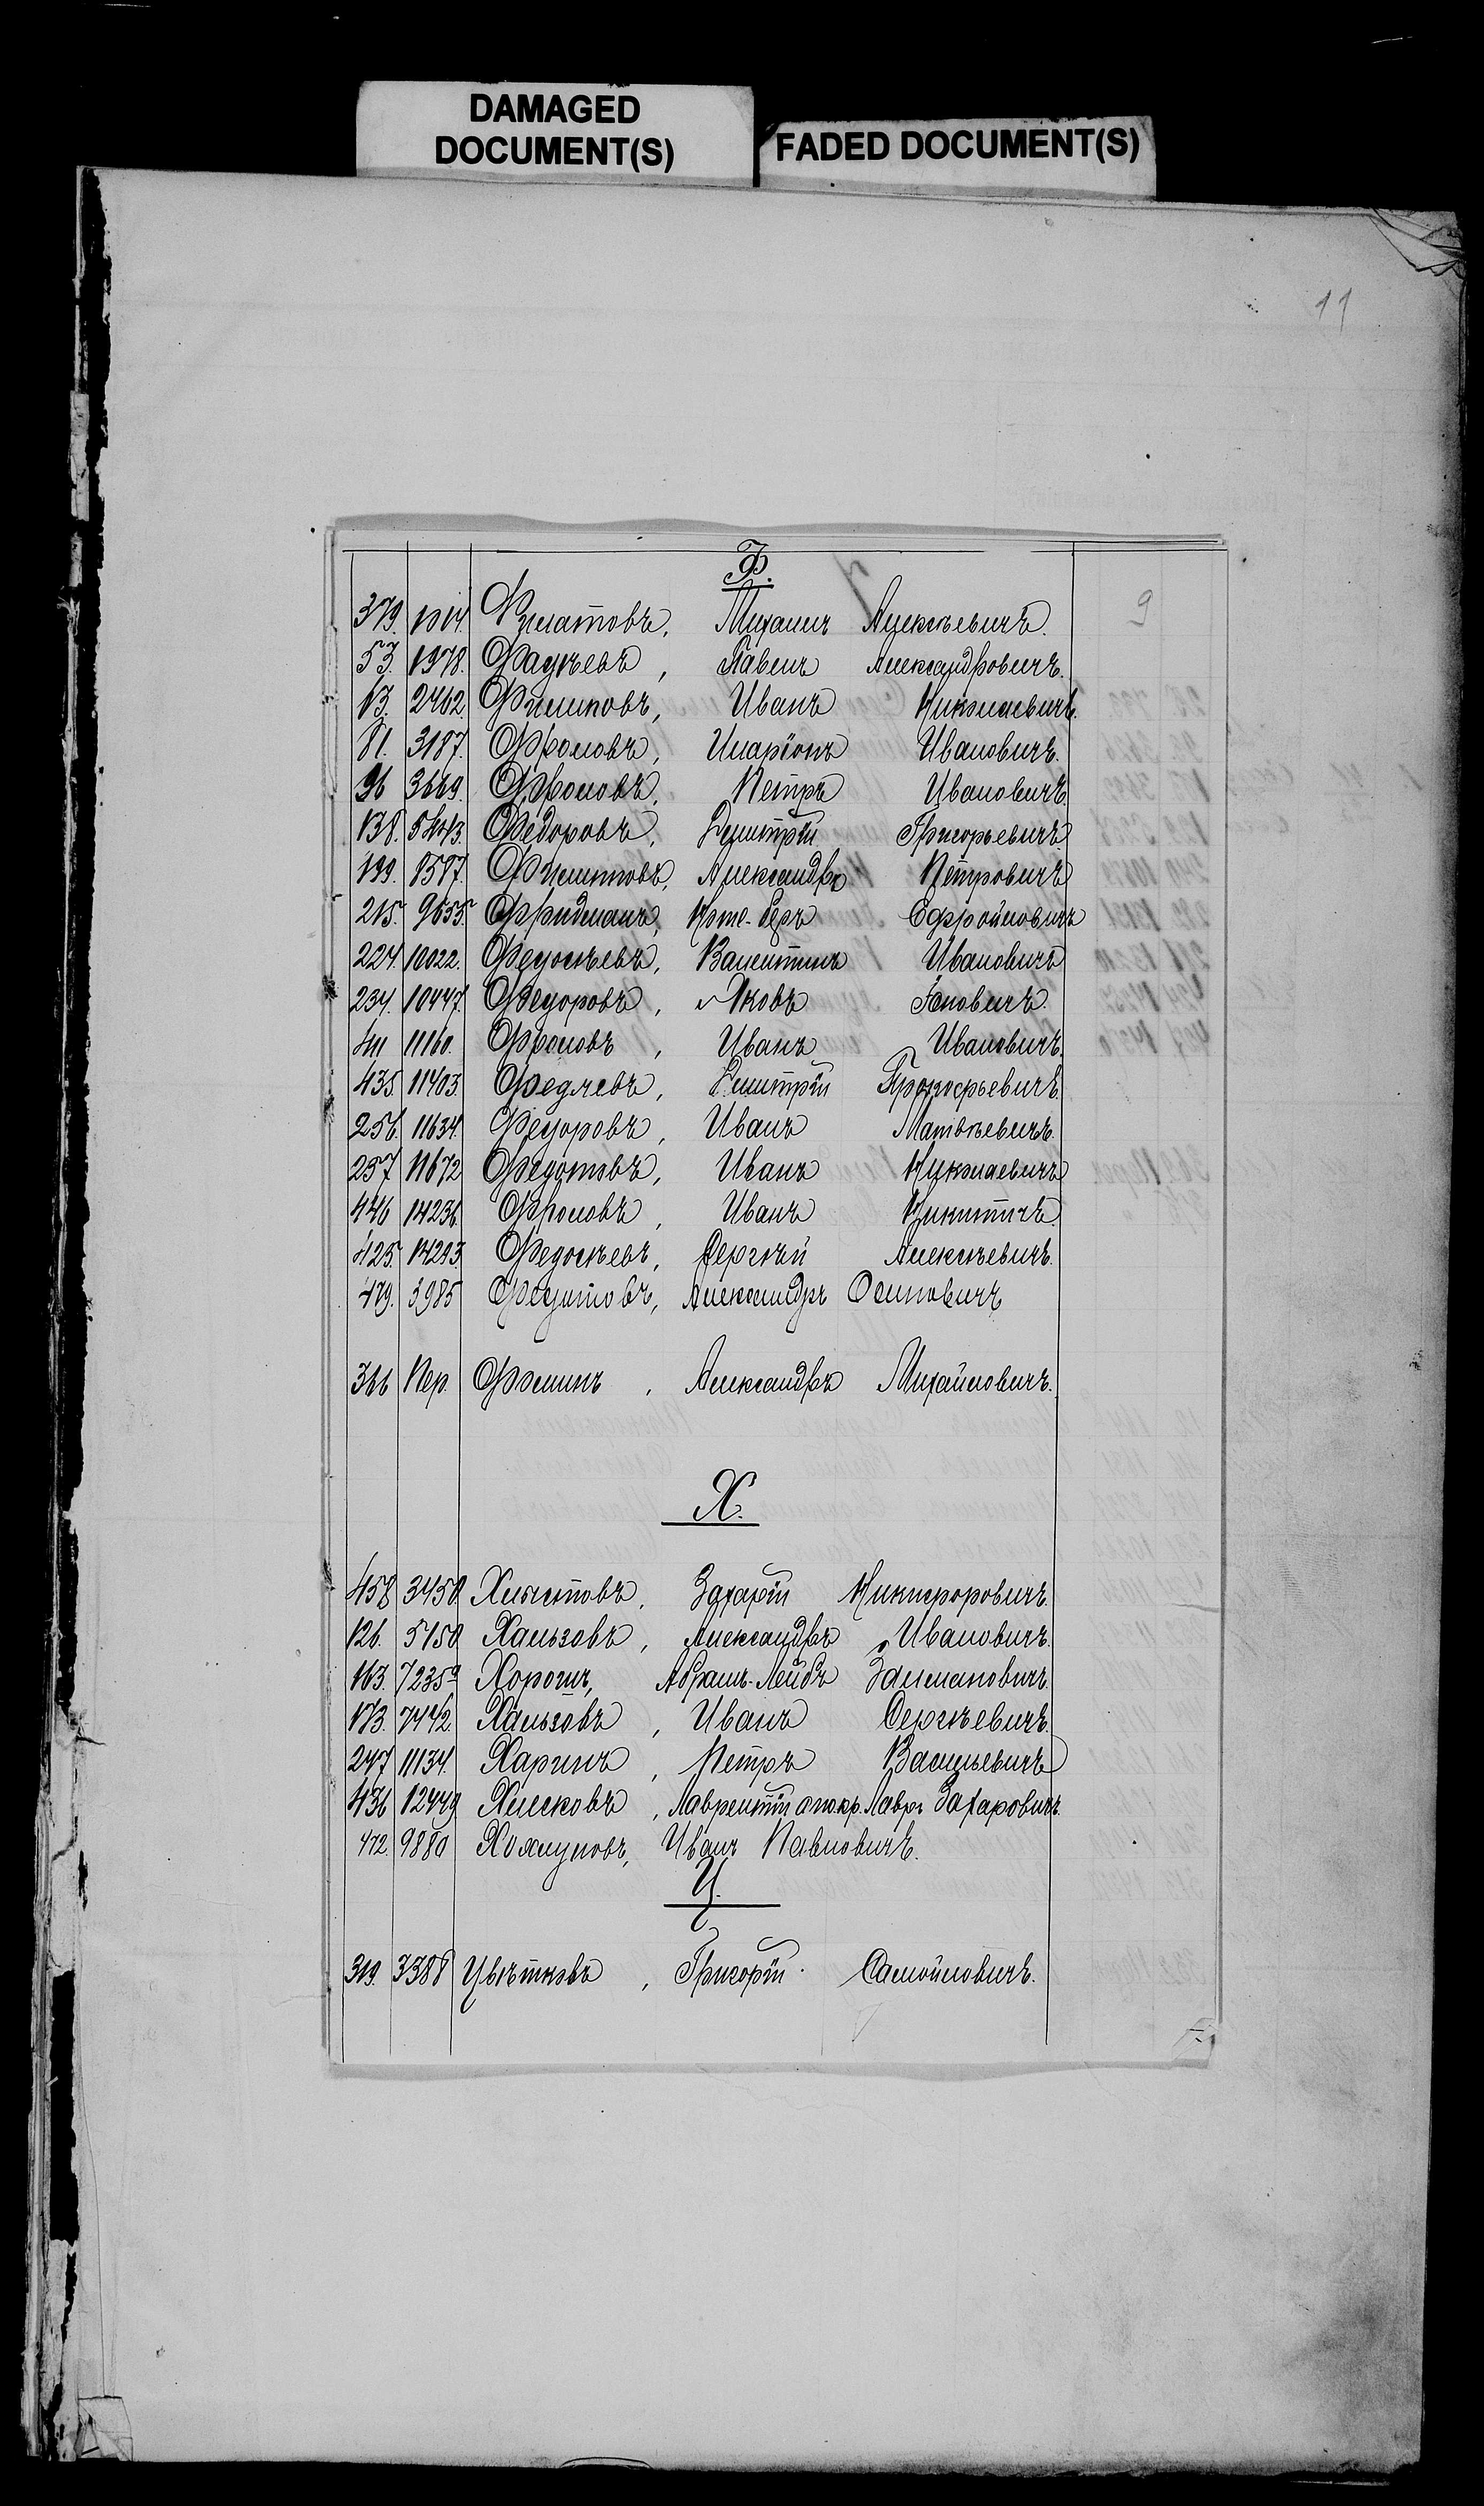 DAMAGED
DOCUMENT(S)
FADED DOCUMENT(S)
11
Ф.
9
379. Филатовъ, Михаилъ Алексѣевичъ.
53. 1978. Фадѣевъ, Павелъ Александровичъ.
13. 2462. Филиповъ, Иванъ Николаевичъ.
81. 3187. Фроловъ, Иларіонъ Ивановичъ.
96 3669. Фроловъ, Петръ Ивановичъ.
138. Федоровъ, Димитрій Григорьевичъ
199. 8587. Филиповъ, Александръ Петровичъ
215. 9655. Фридманъ, Ефройловичъ
224. 10022. Федосѣевъ, Валентинъ Ивановичъ
234. 10447. Федоровъ, Яковъ Яновичъ.
411 11160. Фроловъ, Иванъ Ивановичъ.
435. 11403. Федяевъ, Димитрій Прокофьевичъ.
256. 11634. Федоровъ, Иванъ Матвѣевичъ.
257 11672 Федотовъ, Иванъ Николаевичъ
446 14236. Фроловъ, Иванъ Никитичъ
425. 14293. Федосѣевъ, Сергѣй Алексѣевичъ.
479. 3985 Федотовъ, Александръ Осиповичъ
366 Пер. Фоминъ, Александръ Михайловичъ.
Х.
458 3450 Хлыстовъ, Захарій Никифоровичъ.
126. 5150 Хальзовъ, Александръ Ивановичъ.
163. 7235а Хорошъ, Абрамъ-Лейбъ Залмановичъ.
173. 7442. Хальзовъ, Иванъ Сергѣевичъ.
247 11134. Харинъ, Петръ Васильевичъ
436 12449 Хлесковъ, Лаврентій онъ Лавръ Захаровичъ.
472. 9880 Холуповъ, Иванъ Павловичъ.
Ц.
319. 3388 Цвѣтковъ, Григорій Самойловичъ.